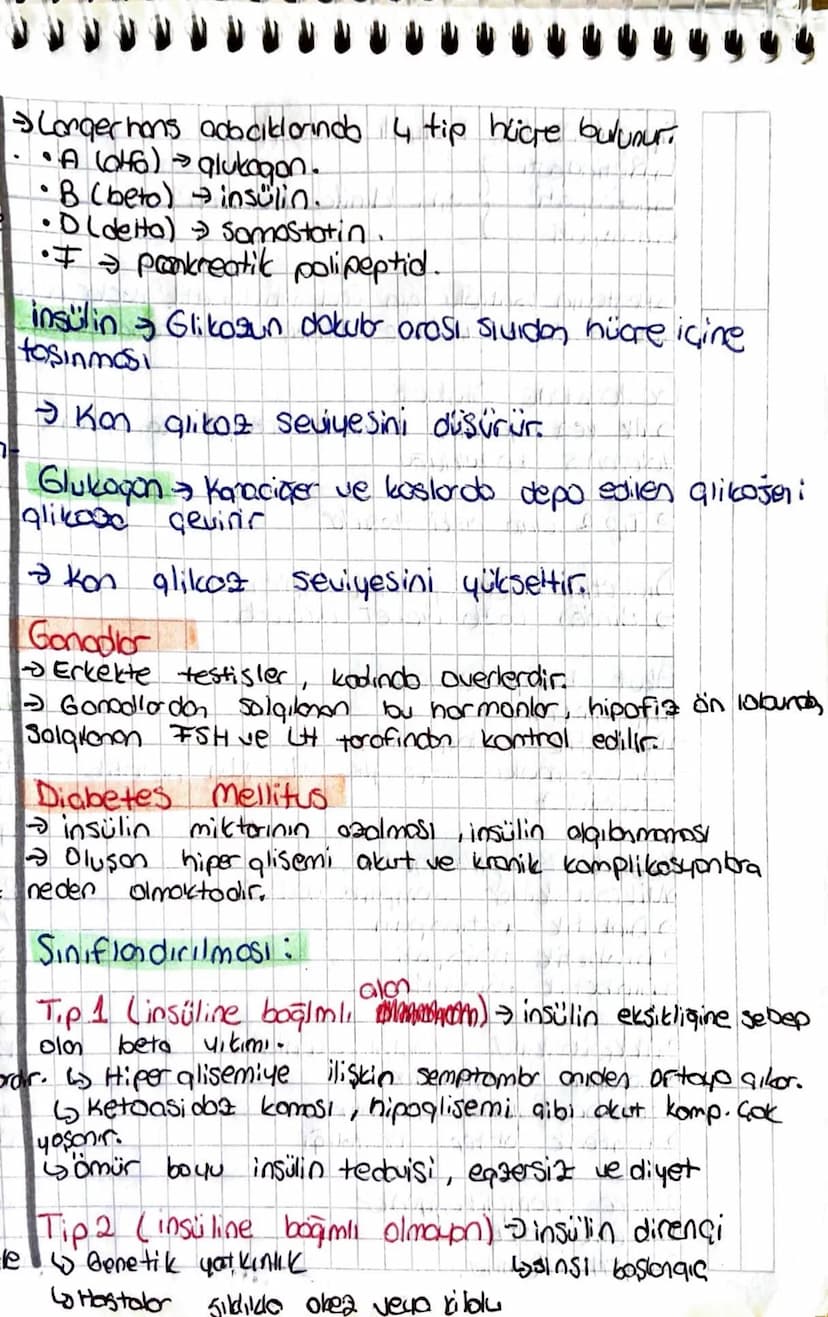 → Langerhans adacıklarında 4 tip hücre bulunur.
• A (alfa) → glukagon.
• B (beta) → insülin.
• D (delta) → Somostatin.
• F → pankreatik polipeptid.
insülin → Glikozun dokular arası sıvıdan hücre içine
taşınması
→ Kan glikoz seviyesini düşürür.
Glukagon → Karaciğer ve kaslarda depo edilen glikojeni
glikoza çevirir
→ Kan glikoz seviyesini yükseltir.
Gonadlar
→ Erkekte testisler, kadında overlerdir.
→ Gonadlardan salgılanan bu hormonlar, hipofiz ön lobundan
Salgılanan FSH ve LH tarafından kontrol edilir.
Diabetes Mellitus
→ insülin miktarının azalması, insülin algılanmaması
→ Oluşan hiperglisemi akut ve kronik komplikasyonlara
neden olmaktadır.
Sınıflandırılması:
alan
Tip 1 (insüline bağımlı) → insülin eksikliğine sebep
olan beta yıkımı.
↳ Hiperglisemiye ilişkin semptomlar aniden ortaya çıkar.
↳ Ketoasidoz koması, hipoglisemi gibi akut komp. çok
yaşanır.
↳ Ömür boyu insülin tedavisi, egzersiz ve diyet
Tip 2 (insüline bağımlı olmayan) → insülin direnci
↳ Genetik yatkınlık ↳ sinsi başlangıç
↳ Hastalar şıklıkla obez veya kilolu